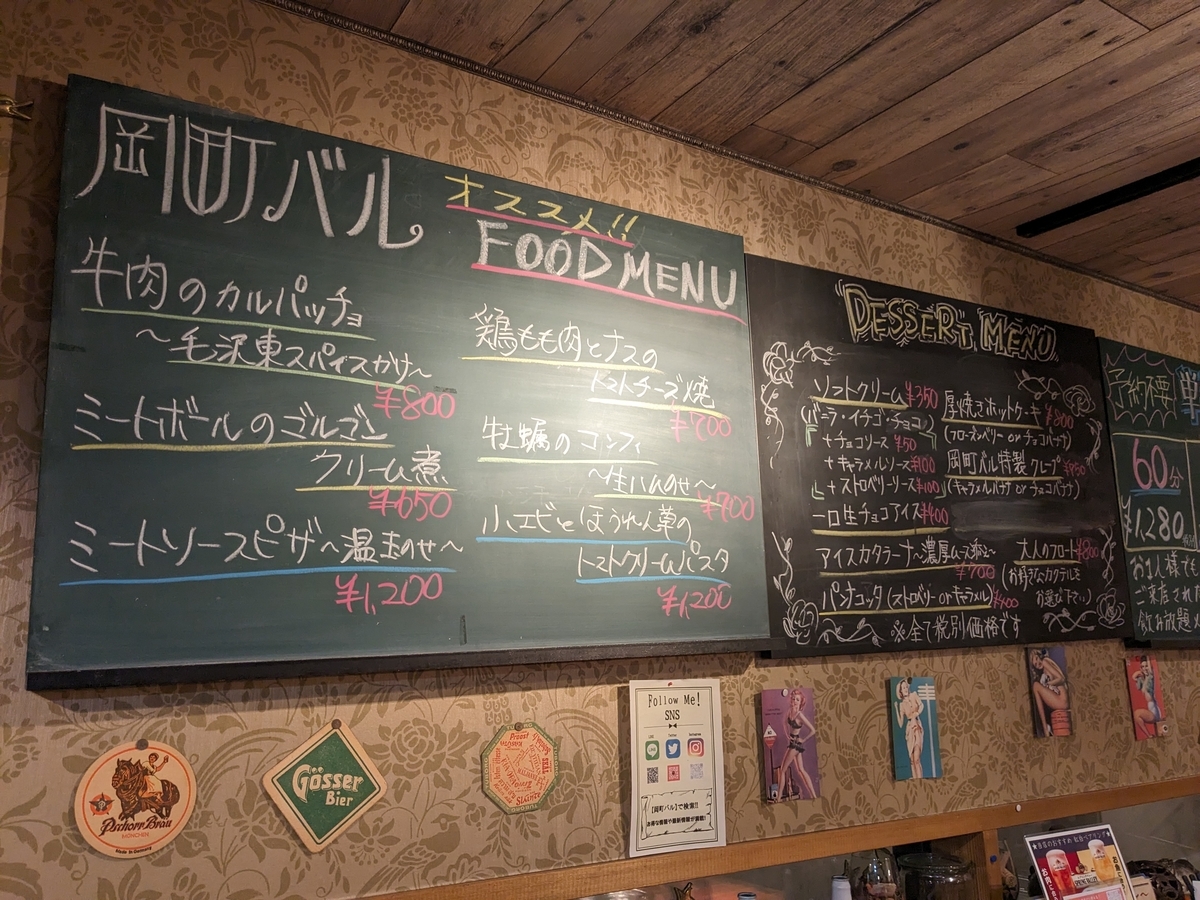 岡町バル
オススメ!!
FOOD MENU
牛肉のカルパッチョ
〜毛沢東スパイスがけ〜
¥800
ミートボールのゴルゴン
クリーム煮
¥650
ミートソースピザ〜温玉のせ〜
¥1,200
鶏もも肉とナスの
トマトチーズ焼
¥700
牡蠣のコンフィ
〜生ハムのせ〜
¥700
小エビとほうれん草の
トマトクリームパスタ
¥1,200
DESSERT MENU
ソフトクリーム ¥350
(バニラ・イチゴ・チョコ)
+チョコソース ¥50
+キャラメルソース ¥100
+ストロベリーソース ¥100
一口生チョコアイス ¥400
アイスカタラーナ〜濃厚ムース添え〜
¥700
パンナコッタ(ストロベリー orキャラメル) ¥400
厚焼きホットケーキ ¥800
(フローズンベリー or チョコバナナ)
岡町バル特製クレープ
(キャラメルバナナ or チョコバナナ)
大人のフロート ¥800
(お好きなカクテルを
お選び下さい)
※全て税別価格です
予約不要
60分
¥1,280
お1人様でも
ご来店された
飲み放題
Pschorr-Bräu
MÜNCHEN
Made in Germany
Gösser
Bier
Follow Me!
SNS
LINE
Twitter
Instagram
【岡町バル】で検索!!
お得な情報や最新情報が満載!
SPRING VALLEY